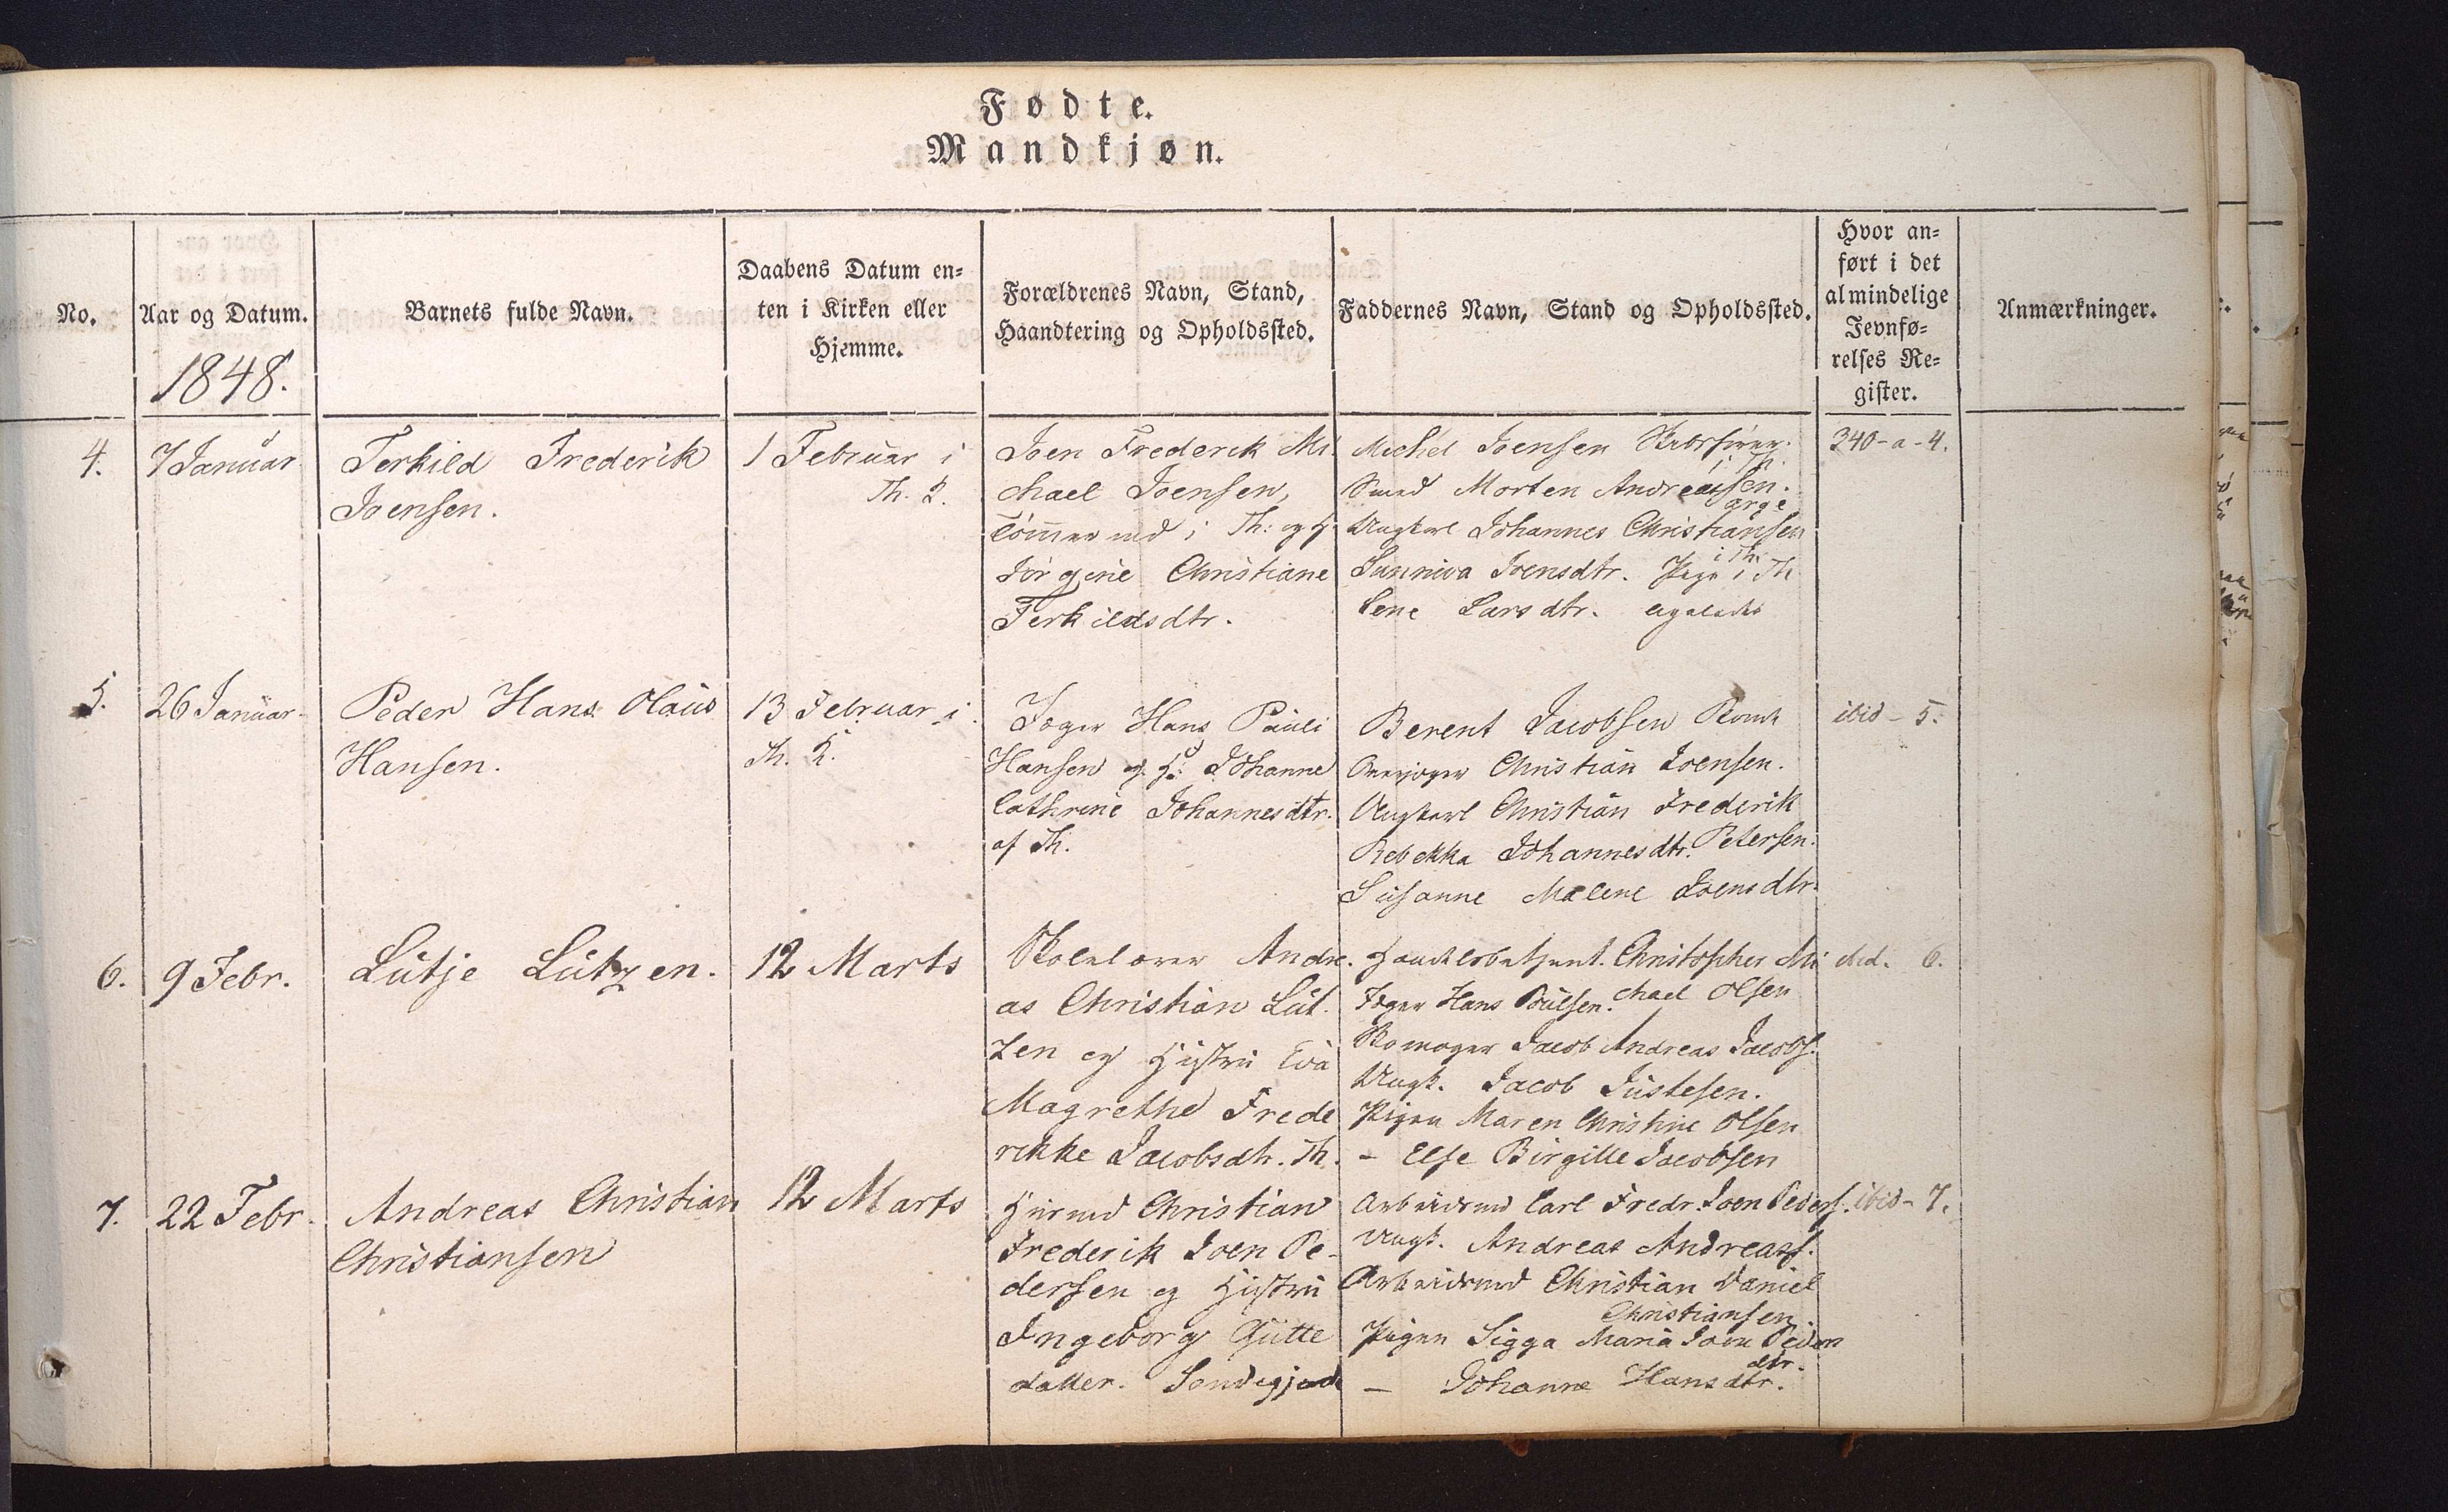 Fødte.
Mandkjøn.
No.
Aar og Datum.
1848.
Barnets fulde Navn.
Daabens Datum en=
ten i Kirken eller
Hjemme.
Forældrenes Navn, Stand,
Haandtering og Opholdssted.
Faddernes Navn, Stand og Opholdssted.
Hvor an=
ført i det
almindelige
Jevnfø=
relses Re=
gister.
Anmærkninger.
4.
7 Januar
Terkild Frederik
Joensen.
1 Februar i
Th.
Joen Frederik Mi
chael Joensen,
i Th: og H
Jørgine Christiane
Terkildsdtr.
Michel Joensen
i Th.
Smed Morten Andreasen.
arge
Ungkarl Johannes Christiansen
i Th.
Sunniva Joensdtr. Pige i Th
Lene Larsdtr. ligeledes
340-a-4.
5.
26 Januar
Peder Hans Olaus
Hansen.
13 Februar i
Th. K.
Joger Hans Pauli
Hansen og H: Johanne
Cathrine Johannesdtr.
af Th.
Berent Jacobsen
Christian Joensen.
Ungkarl Christian Frederik
Petersen.
Rebekka Johannesdtr.
Susanne Malene Joensdtr.
ibid - 5.
6.
9 Febr.
Lütje Lützen.
12 Marts
Skolelærer Andre
as Christian Lüt
zen og Hustru Eva
Magrethe Frede
rikke Jacobsdtr. Th.
Handelsbetjent. Christopher Mi
chael Olsen
Joger Hans Poulsen.
Skomager Jacob Andreas Jacobs.
Ungk. Jacob Justesen.
Pigen Maren Christine Olsen
- Else Birgitte Jacobsen
ibid. 6.
7.
22 Febr.
Andreas Christian
Christiansen
12 Marts
Christian
Frederik Joen Pe-
dersen og Hustru
Ingeborg Gutte
datter.
Arbeidsmd Carl Fredr. Joen Peders.
Ungk. Andreas Andreass.
Arbeidsmd Christian Daniel
Christiansen
Pigen Sigga Maria Joen Peders
dtr.
- Johanne Hansdtr.
ibid - 7.